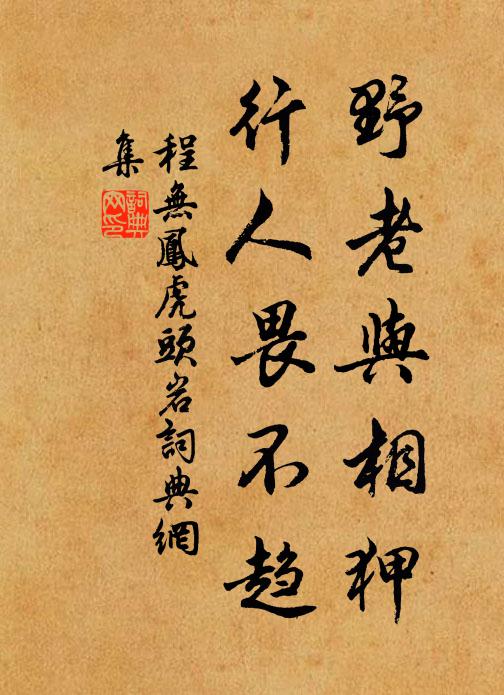 野老與相狎
行人畏不趨
程無鳳虎頭岩詞典網
集
詞典網印